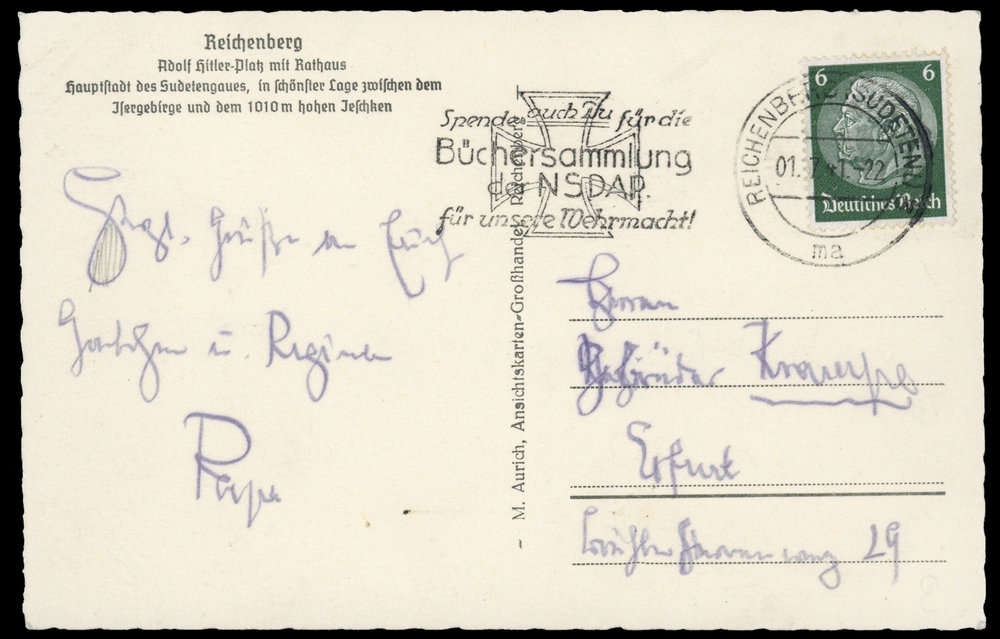 Reichenberg
Adolf Hitler-Platz mit Rathaus
Hauptstadt des Sudetengaues, in schönster Lage zwischen dem
Isergebirge und dem 1010 m hohen Jeschken
Spende auch Du für die
Büchersammlung
der NSDAP.
für unsere Wehrmacht!
REICHENBERG (SUDETENL)
01. 7 41 22
ma
6 6
Deutsches Reich
Grüße an Euch
u. Regina
Papa
- M. Aurich, Ansichtskarten-Großhandel, Reichenberg
Herren
Gebrüder
Erfurt
29